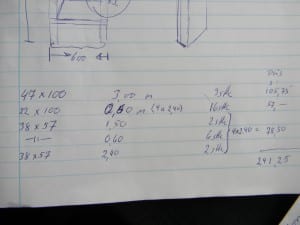 600
Prijs
47 x 100 3,00 m 3 stk 105,75
22 x 100 0,50 m (4x240) 16 stk 57,—
38 x 57 1,50 2 stk
—"— 0,60 6 stk 4x240 = 78,50
38 x 57 2,40 2 stk
241,25